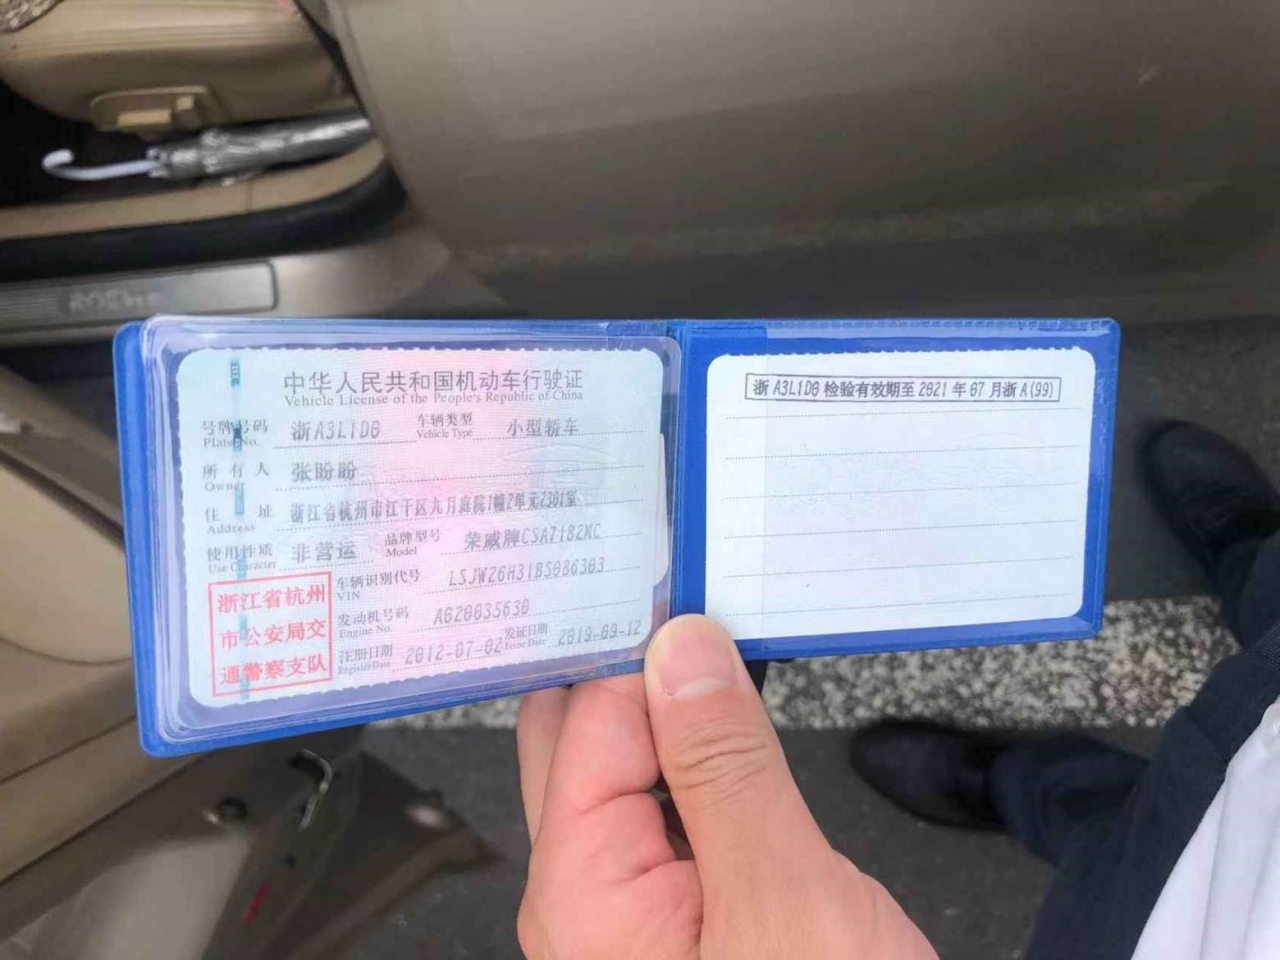 中华人民共和国机动车行驶证
Vehicle License of the People's Republic of China
号牌号码 浙A3L1D0 车辆类型 小型轿车
Plate No. Vehicle Type
所有人 张盼盼
Owner
住址 浙江省杭州市江干区九月庭院1幢2单元2301室
Address
使用性质 非营运 品牌型号 荣威牌CSA7182MC
Use Character Model
浙江省杭州
市公安局交
通警察支队
车辆识别代号 LSJW26H31BS086303
VIN
发动机号码 A020035630
Engine No.
注册日期 2012-07-02 发证日期 2019-09-12
Register Date Issue Date
浙A3L1D0检验有效期至2021年07月浙A(99)